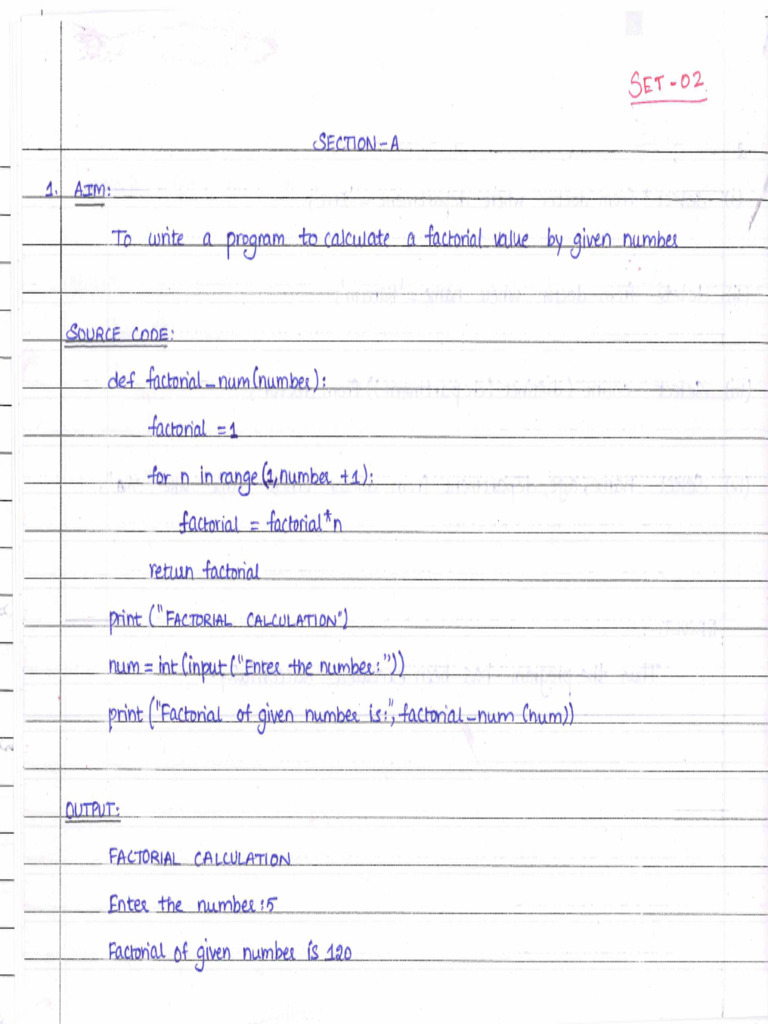 SET-02
SECTION-A
1. AIM:
To write a program to calculate a factorial value by given number
SOURCE CODE:
def factorial_num(number):
factorial =1
for n in range(1,number +1):
factorial = factorial*n
return factorial
print ("FACTORIAL CALCULATION")
num = int (input ("Enter the number:"))
print ("Factorial of given number is:", factorial_num (num))
OUTPUT:
FACTORIAL CALCULATION
Enter the number:5
Factorial of given number is 120